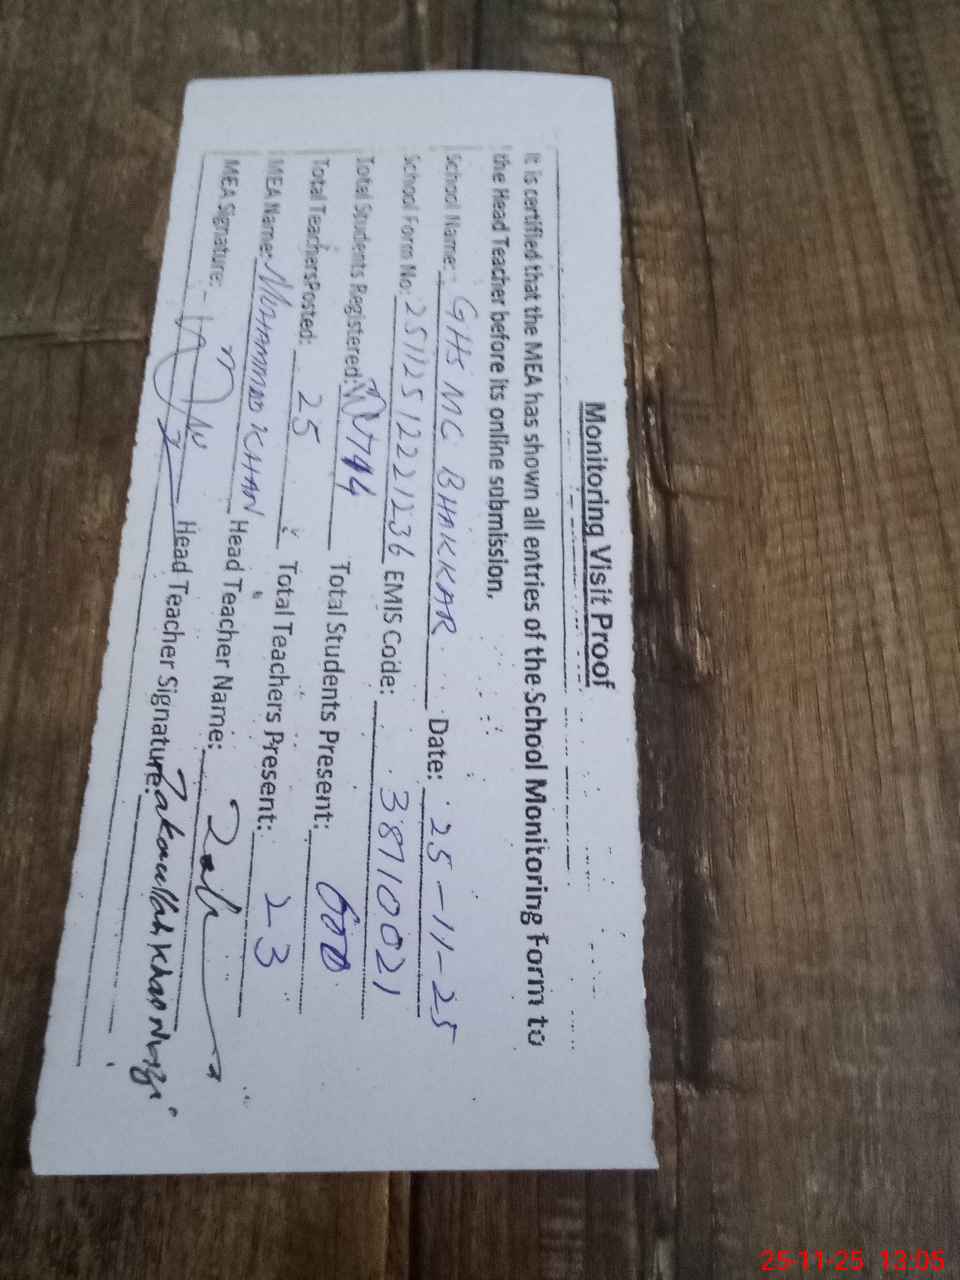 Monitoring Visit Proof
It is certified that the MEA has shown all entries of the School Monitoring Form to
the Head Teacher before its online submission.
School Name: GHS MC BHAKKAR Date: 25-11-25
School Form No: 251125122 1236 EMIS Code: 38710021
Total Students Registered: 744 Total Students Present: 600
Total TeachersPosted: 25 Total Teachers Present: 23
MEA Name: MUHAMMAD KHAN Head Teacher Name:
MEA Signature: Head Teacher Signature: Zakaullah Khan Niazi
25-11-25 13:05